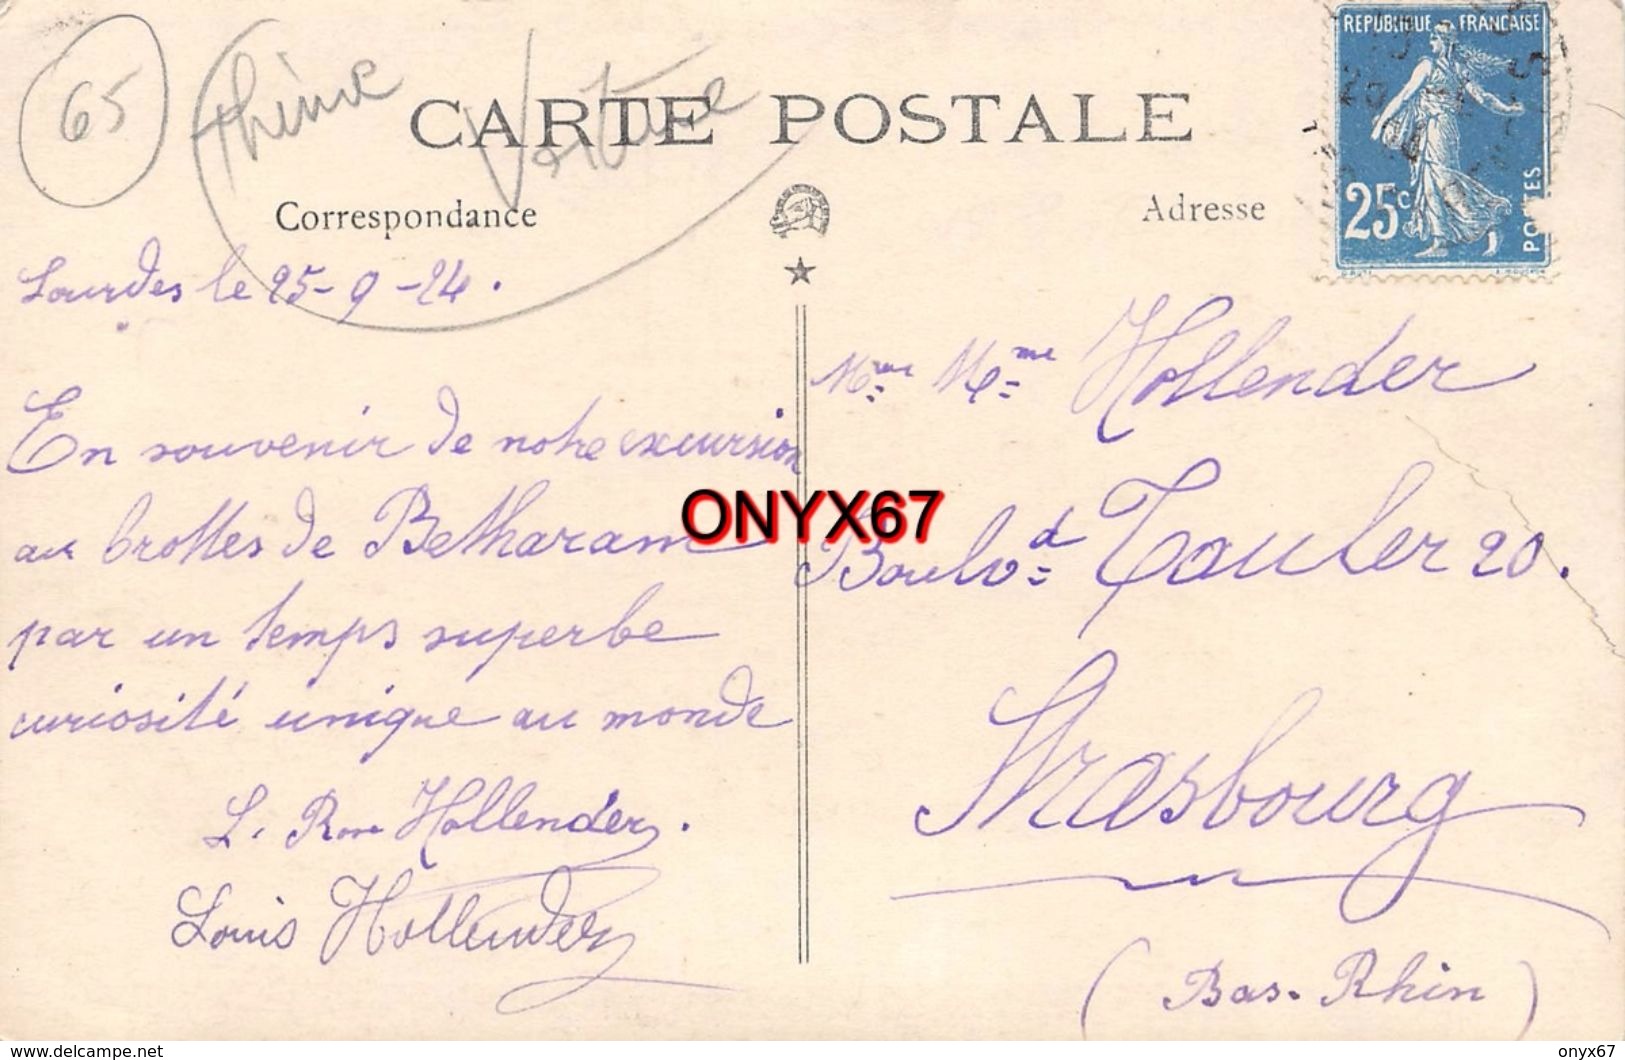 65
thème
Voiture
CARTE POSTALE
Correspondance
Adresse
REPUBLIQUE FRANCAISE
25c
POSTES
Lourdes le 25-9-24.
En souvenir de notre excursion
aux Grottes de Betharam
par un temps superbe
curiosité unique au monde
L. Hollender.
Louis Hollender
Mme Hollender
Boulvd Tauler 20.
Strasbourg
(Bas-Rhin)
ONYX67
https://www.delcampe.net
onyx67